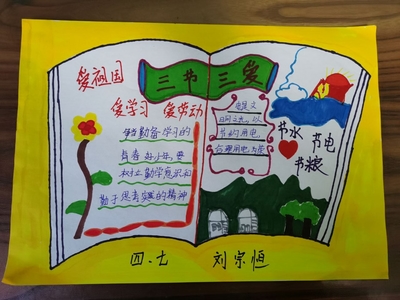 三节三爱
爱祖国
爱学习 爱劳动
做勤奋学习的
有为好少年,要
树立勤学意识和
勤于思考实践的精神
节约用电
合理用电
节水 节电
节粮
四.七 刘宗恒